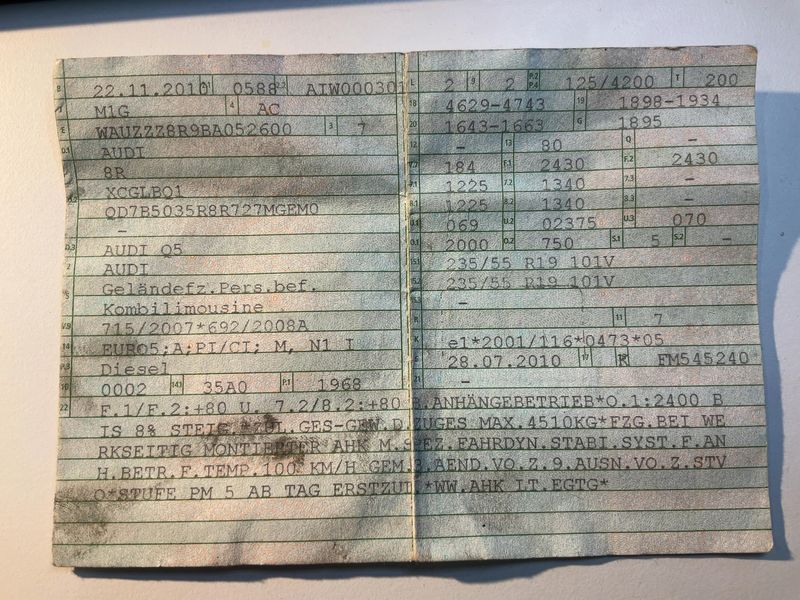 B 22.11.2010 0588 AIW000301
J M1G 4 AC
E WAUZZZ8R9BA052600 3 7
D.1 AUDI
8R
XCGLBQ1
QD7B5035R8R727MGEM0
–
D.3 AUDI Q5
2 AUDI
5 Geländefz.Pers.bef.
Kombilimousine
V.9 715/2007*692/2008A
14 EURO5;A;PI/CI; M, N1 I
P.3 Diesel
10 0002 14.1 35A0 P.1 1968
L 2 9 2 P.2 P.4 125/4200 T 200
18 4629-4743 19 1898-1934
20 1643-1663 G 1895
12 – 13 80 Q –
V.7 184 F.1 2430 F.2 2430
7.1 1225 7.2 1340 7.3 –
8.1 1225 8.2 1340 8.3 –
U.1 069 U.2 02375 U.3 070
O.1 2000 O.2 750 S.1 5 S.2 –
15.1 235/55 R19 101V
15.2 235/55 R19 101V
–
R 11 7
K e1*2001/116*0473*05
6 28.07.2010 17 K FM545240
21 –
22 F.1/F.2:+80 U. 7.2/8.2:+80 B.ANHÄNGEBETRIEB*O.1:2400 B
IS 8% STEIG.*ZUL.GES-GEW.D.ZUGES MAX.4510KG*FZG.BEI WE
RKSEITIG MONTIERTER AHK M.SPEZ.FAHRDYN.STABI.SYST.F.AN
H.BETR.F.TEMP.100 KM/H GEM.3.AEND.VO.Z.9.AUSN.VO.Z.STV
O*STUFE PM 5 AB TAG ERSTZUL*WW.AHK LT.EGTG*